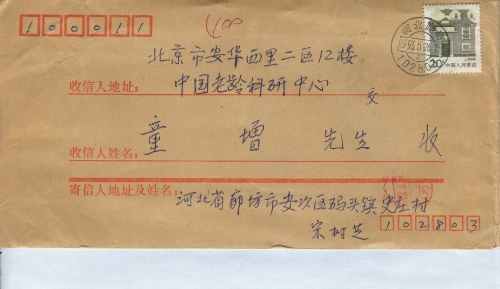 100011
400
北京市安华西里二区12楼
收信人地址:
中国老龄科研中心 交
收信人姓名:
童增 先生 收
寄信人地址及姓名:
河北省廊坊市安次区码头镇史庄村
宋树芝
102803
20分
中国人民邮政